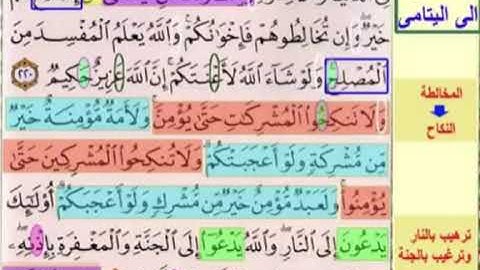 خَيْرٌ وَإِن تُخَالِطُوهُمْ فَإِخْوَانُكُمْ وَاللَّهُ يَعْلَمُ الْمُفْسِدَ مِنَ
الْمُصْلِحِ وَلَوْ شَاءَ اللَّهُ لَأَعْنَتَكُمْ إِنَّ اللَّهَ عَزِيزٌ حَكِيمٌ ٢٢٠
وَلَا تَنكِحُوا الْمُشْرِكَاتِ حَتَّىٰ يُؤْمِنَّ وَلَأَمَةٌ مُّؤْمِنَةٌ خَيْرٌ
مِّن مُّشْرِكَةٍ وَلَوْ أَعْجَبَتْكُمْ وَلَا تُنكِحُوا الْمُشْرِكِينَ حَتَّىٰ
يُؤْمِنُوا وَلَعَبْدٌ مُّؤْمِنٌ خَيْرٌ مِّن مُّشْرِكٍ وَلَوْ أَعْجَبَكُمْ أُولَٰئِكَ
يَدْعُونَ إِلَى النَّارِ وَاللَّهُ يَدْعُوا إِلَى الْجَنَّةِ وَالْمَغْفِرَةِ بِإِذْنِهِ
الى اليتامى
المخالطة
النكاح
ترهيب بالنار
وترغيب بالجنة